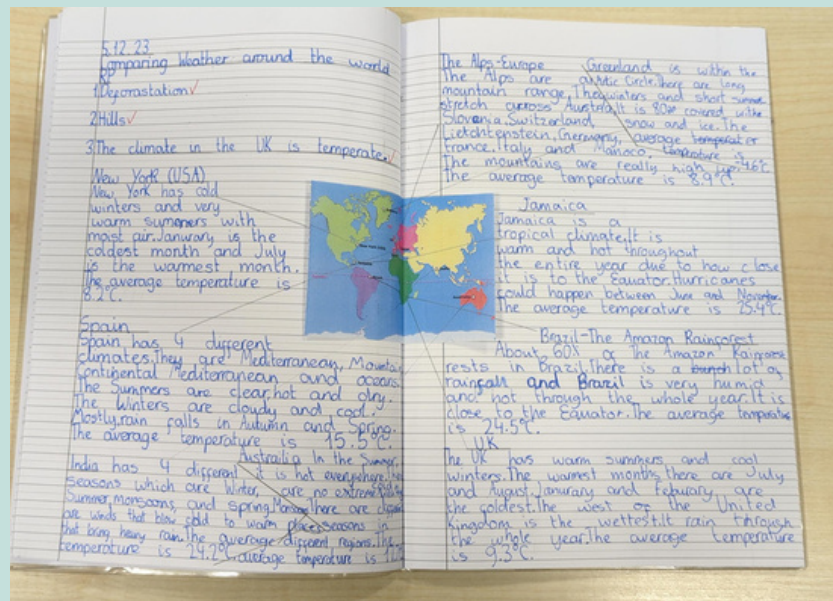 5.12.23
Comparing Weather around the world
1 Deforastation
2 Hills
3 The climate in the UK is temperate.
New York (USA)
New York has cold
winters and very
warm summers with
moist air. Janurary is the
coldest month and July
is the warmest month.
The average temperature is
8.2°C.
Spain
Spain has 4 different
climates. They are Mediterranean,
Continental Mediterranean and
The Summers are clear, hot and dry.
The winters are cloudy and cool.
Mostly, rain falls in Autumn and Spring.
The average temperature is 15.5°C.
India has 4 different
seasons which are Winter,
Summer, monsoons, and spring. Monsoons
are winds that blow cold to warm places
that bring heavy rain. The average
temperature is 24.2°C.
Austrailia In the Summer,
it is not everywhere.
are no extreme
There are
seasons in
different regions. The
average temperature is
The Alps-Europe
The Alps are a
mountain range. They
stretch across Austria,
Slovenia, Switzerland,
Lietchtenstein, Germany,
France, Italy and Manoco.
The mountains are really high up.
The average temperature is 8.9°C.
Greenland is within the
Artic Circle. There are long
winters and short summer
It is 80% covered with
snow and ice. The
average temperater
temperature is
-16°C.
Jamaica
Jamaica is a
tropical climate. It is
warm and hot throughout
the entire year due to how close
it is to the Equator. Hurricanes
could happen between June and November.
The average temperature is 25.4°C.
Brazil-The Amazon Rainforest
About 60% of the Amazon Rainforest
rests in Brazil. There is a bunch lot of
rainfall and Brazil is very humid
and hot through the whole year. It is
close to the Equator. The average temperature
is 24.5°C.
UK
The UK has warm summers and cool
winters. The warmest months there are July
and August. Janurary and Febuary are
the coldest. The west of the United
Kingdom is the wettest. It rain through
the whole year. The average temperature
is 9.3°C.